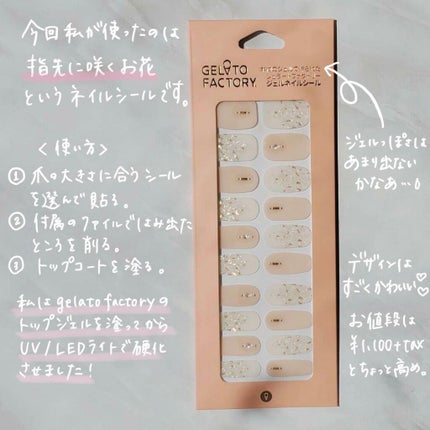 今回私が使ったのは
指先に咲くお花
というネイルシールです。
〈使い方〉
① 爪の大きさに合うシール
を選んで貼る。
② 付属のファイルではみ出た
ところを削る。
③ トップコートを塗る。
私はgelato factoryの
トップジェルを塗ってから
UV/LEDライトで硬化
させました!
GELATO
FACTORY
ジェルネイルシール
ジェルっぽさは
あまり出ない
かなぁ…
デザインは
すごくかわいい♡
お値段は
¥1,100+tax
とちょっと高め。